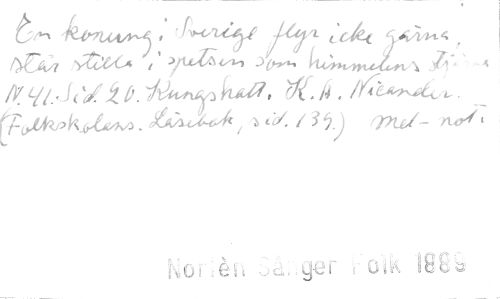 En konung i Sverige flyr icke gärna,
står stilla i spetsen som himmelens stjärna
N. 41. Sid. 20. Kungshatt. K. A. Nicander.
(Folkskolans. Läsebok, sid. 139.) med - not.
Norlèn Sånger Folk 1889